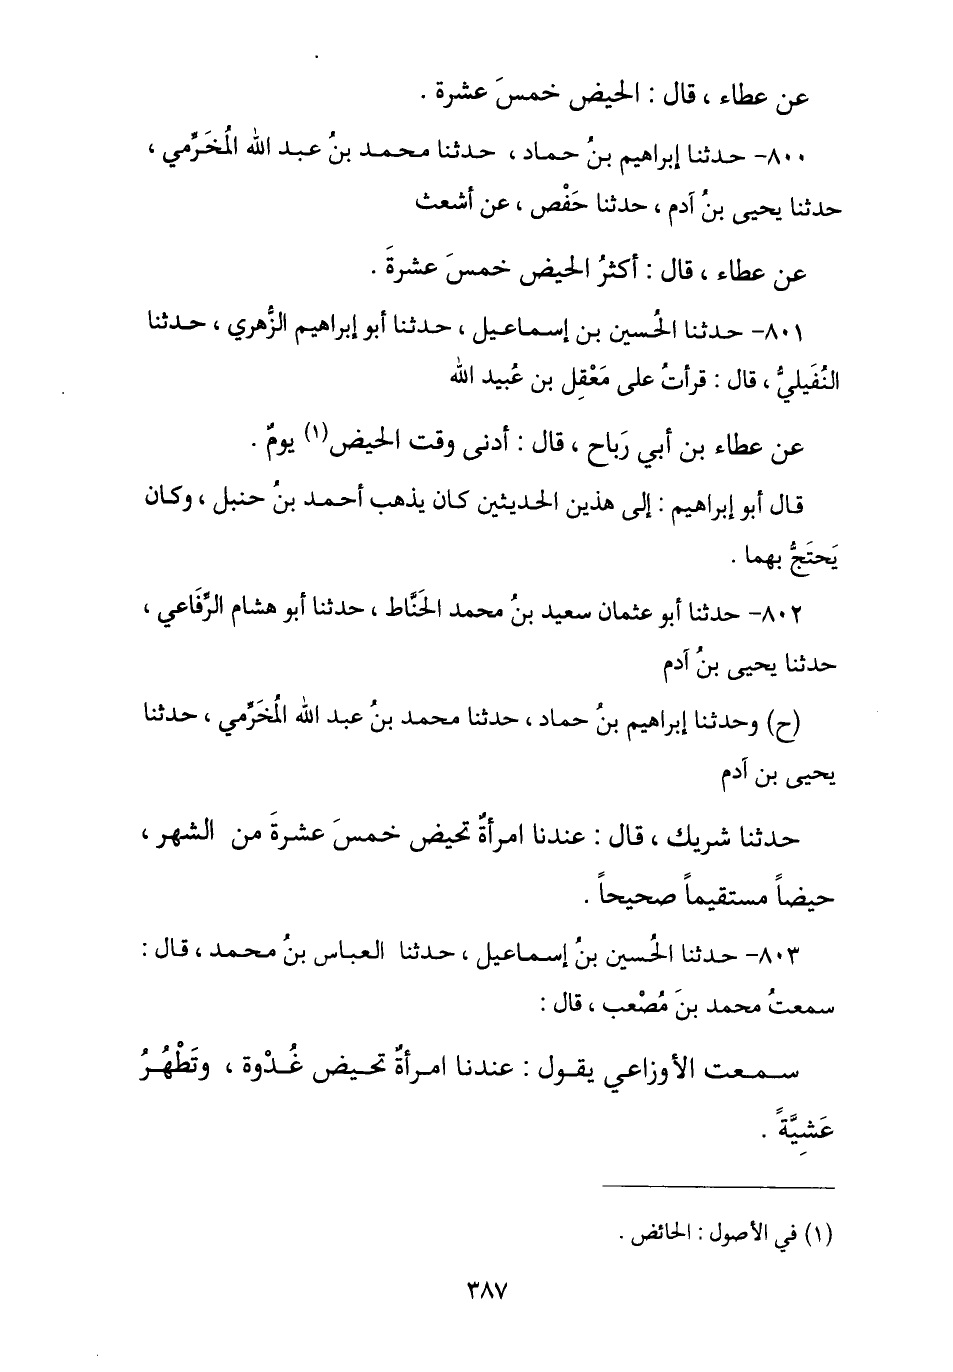 عن عطاء ، قال : الحيض خمسَ عشرة .
٨٠٠- حدثنا إبراهيم بنُ حماد ، حدثنا محمد بنُ عبد الله المُخَرِّمي ،
حدثنا يحيى بنُ آدم ، حدثنا حَفْص ، عن أشعث
عن عطاء ، قال : أكثرُ الحيض خمسَ عشرةَ .
٨٠١- حدثنا الحُسين بن إسماعيل ، حدثنا أبو إبراهيم الزُّهري ، حدثنا
النُّفَيليُّ ، قال : قرأتُ على مَعْقِل بن عُبيد الله
عن عطاء بن أبي رَباح ، قال : أدنى وقت الحيض(١) يومٌ .
قال أبو إبراهيم : إلى هذين الحديثين كان يذهب أحمد بنُ حنبل ، وكان
يَحتَجُّ بهما .
٨٠٢- حدثنا أبو عثمان سعيد بنُ محمد الحَنَّاط ، حدثنا أبو هشام الرِّفَاعي ،
حدثنا يحيى بنُ آدم
(ح) وحدثنا إبراهيم بنُ حماد ، حدثنا محمد بنُ عبد الله المُخَرِّمي ، حدثنا
يحيى بن آدم
حدثنا شريك ، قال : عندنا امرأةٌ تحيض خمسَ عشرةَ من الشهر ،
حيضاً مستقيماً صحيحاً .
٨٠٣- حدثنا الحُسين بنُ إسماعيل ، حدثنا العباس بنُ محمد ، قال :
سمعتُ محمد بنَ مُصْعب ، قال :
سمعت الأوزاعي يقول : عندنا امرأةٌ تحيض غُدْوة ، وتَطْهُرُ
عَشِيَّةً .
(١) في الأصول : الحائض .
٣٨٧